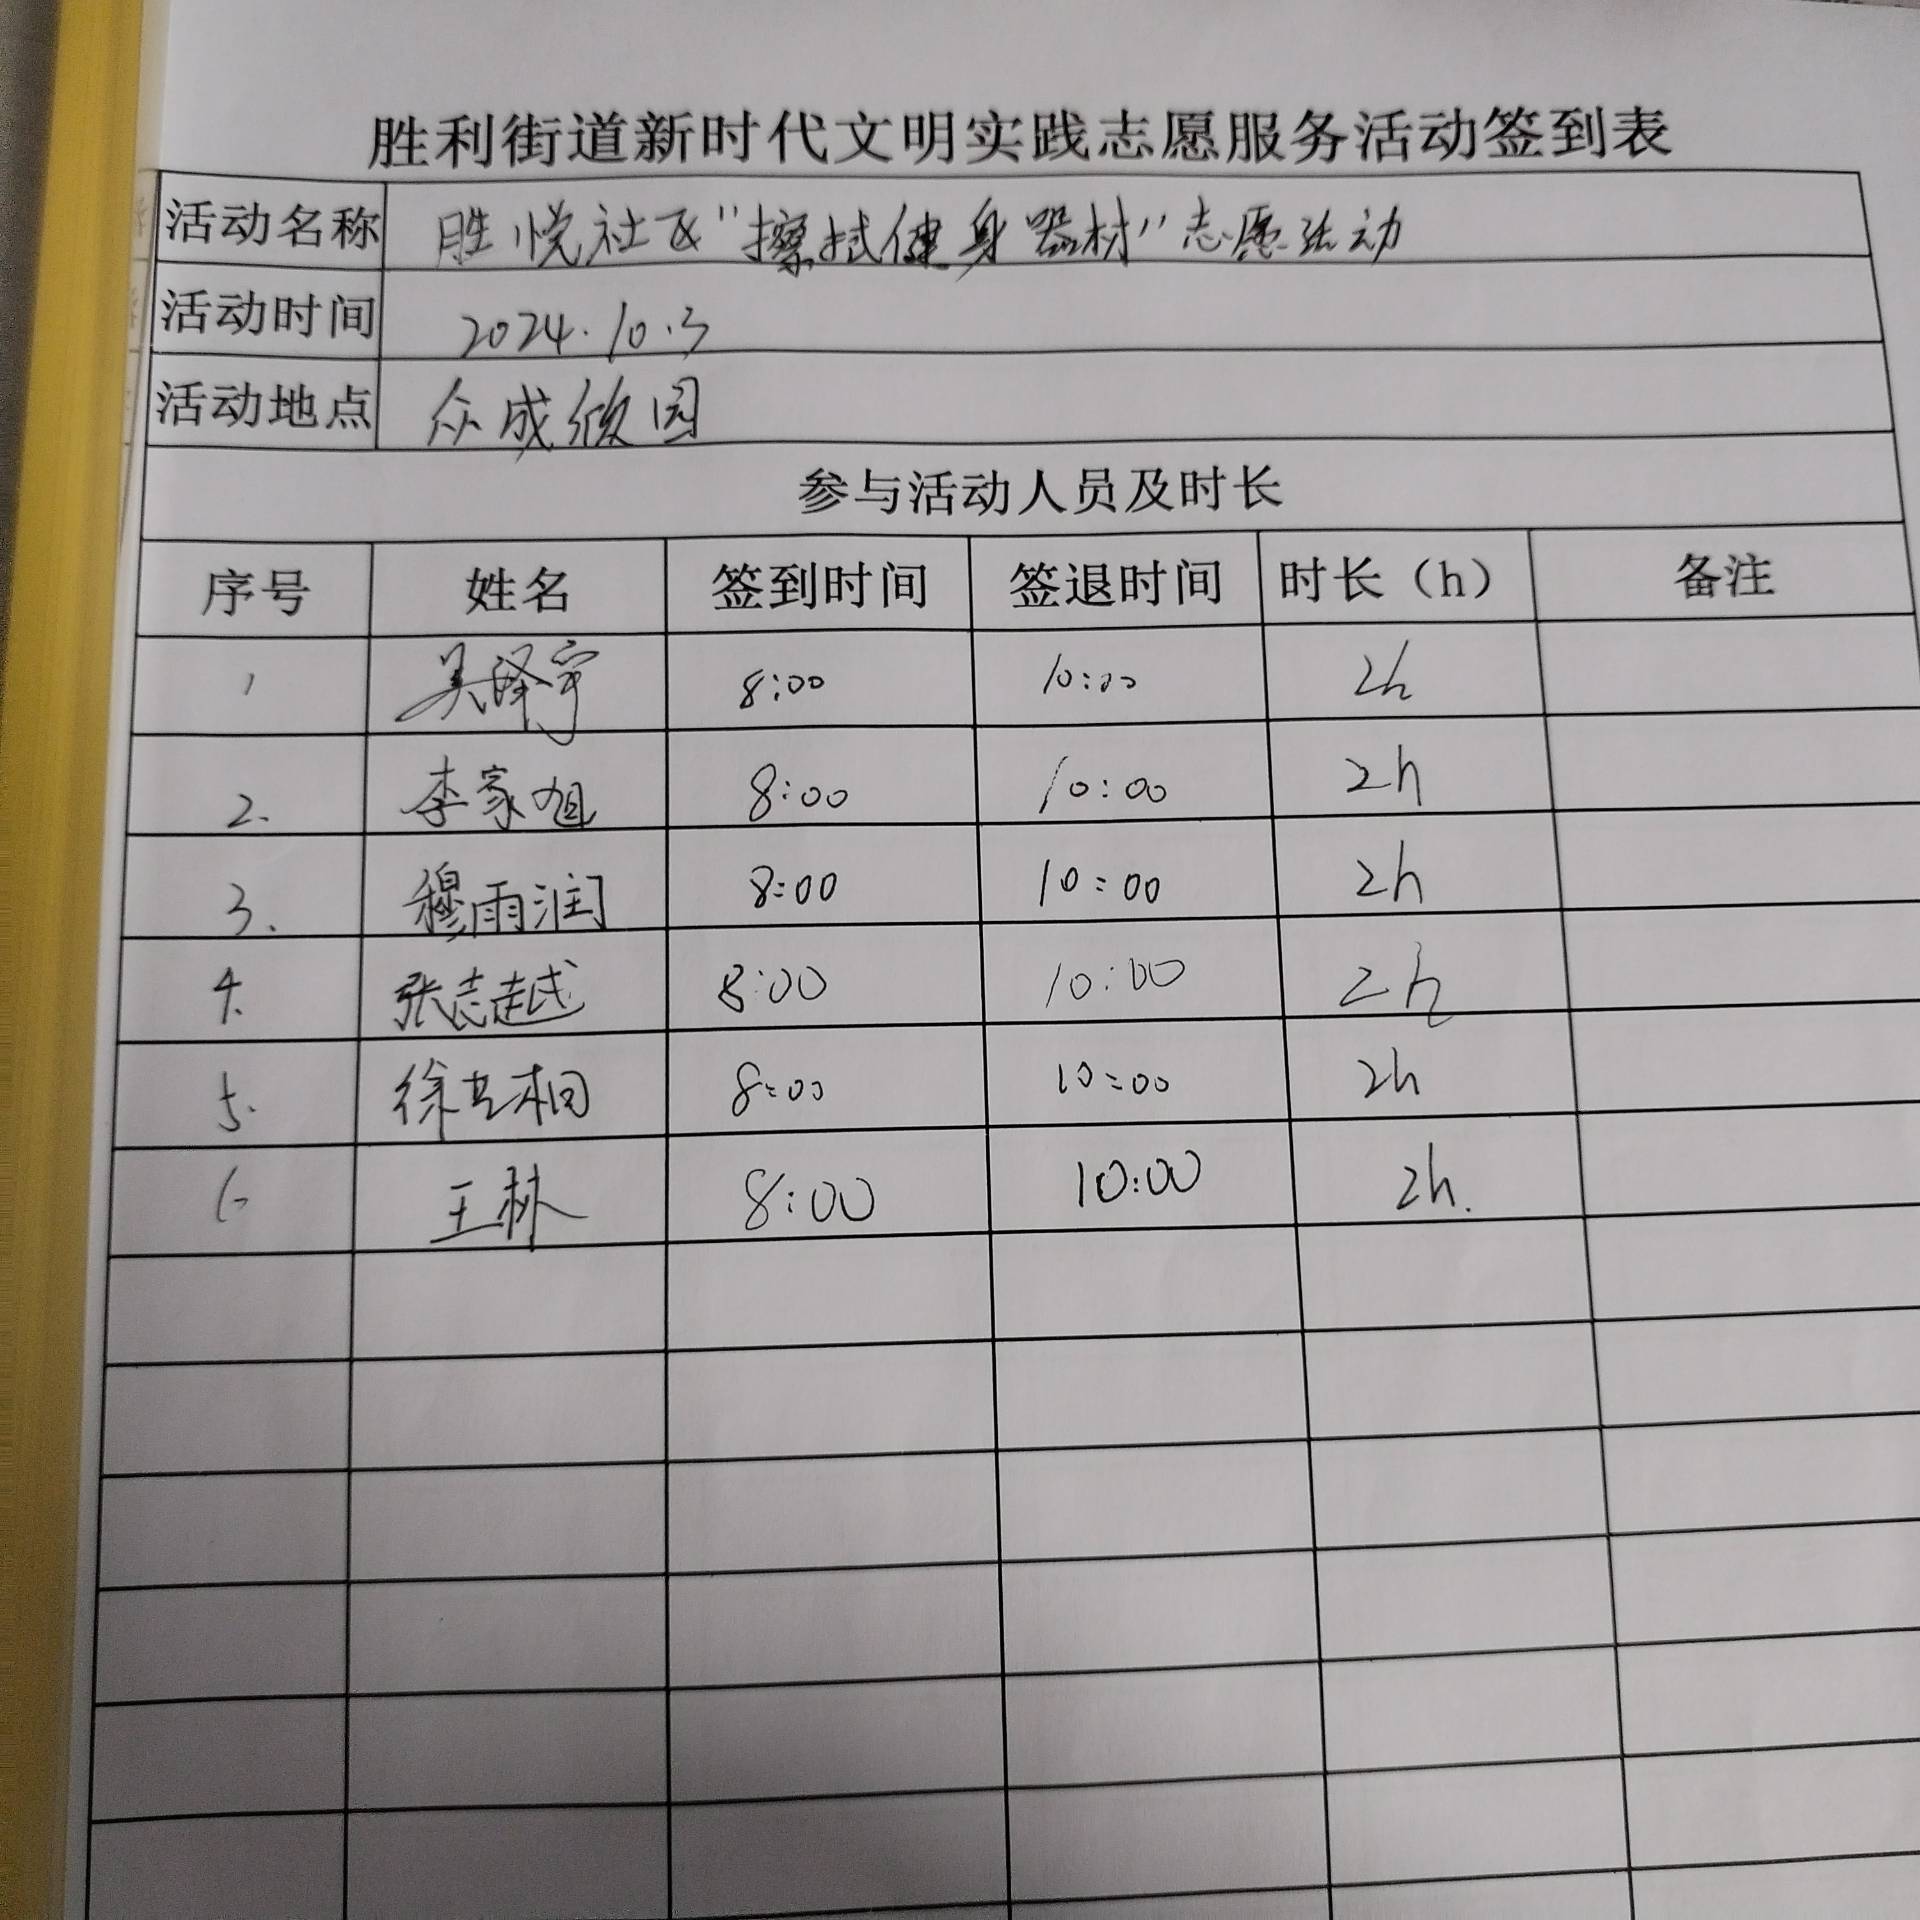 胜利街道新时代文明实践志愿服务活动签到表
活动名称 胜悦社区"擦拭健身器材"志愿活动
活动时间 2024.10.3
活动地点 众成欣园
参与活动人员及时长
序号 姓名 签到时间 签退时间 时长（h） 备注
1 吴泽宇 8:00 10:00 2h
2. 李家旭 8:00 10:00 2h
3. 穆雨润 8:00 10:00 2h
4. 张志越 8:00 10:00 2h
5. 徐 8:00 10:00 2h
6 王林 8:00 10:00 2h.